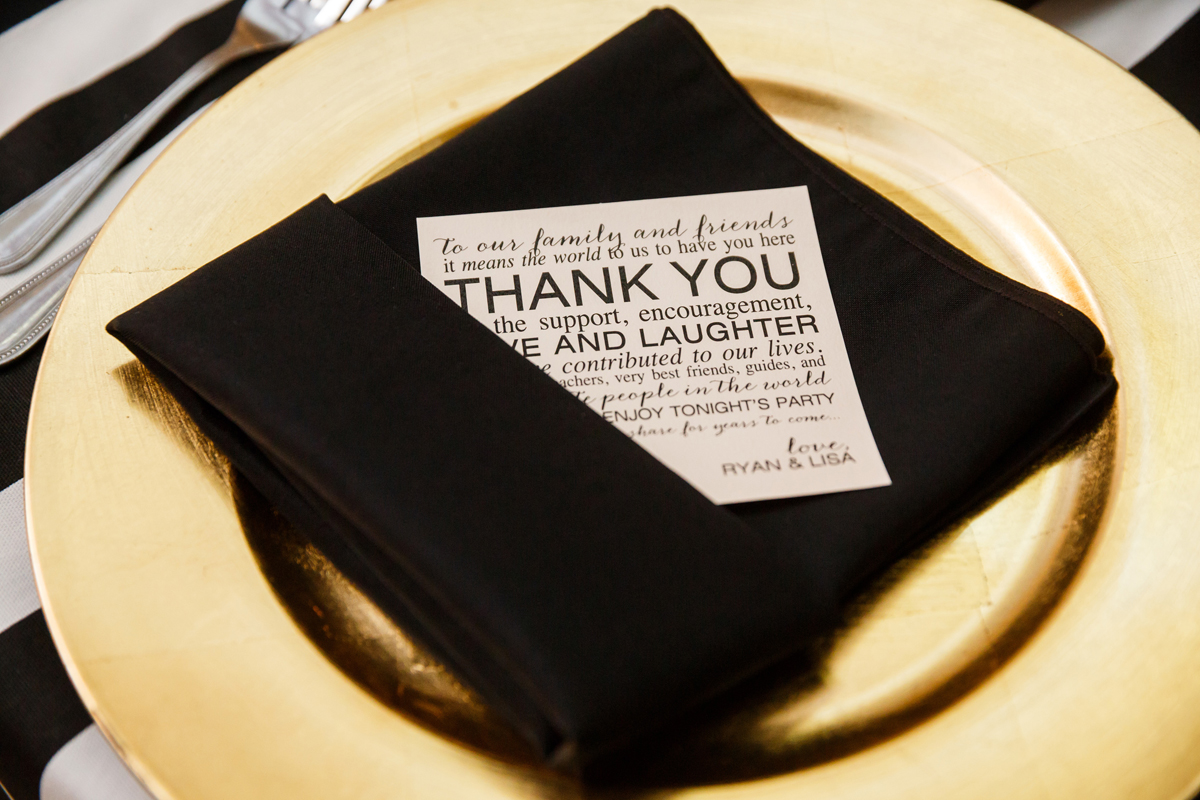 to our family and friends
it means the world to us to have you here
THANK YOU
the support, encouragement,
VE AND LAUGHTER
e contributed to our lives.
achers, very best friends, guides, and
people in the world
ENJOY TONIGHT'S PARTY
share for years to come...
love,
RYAN & LISA